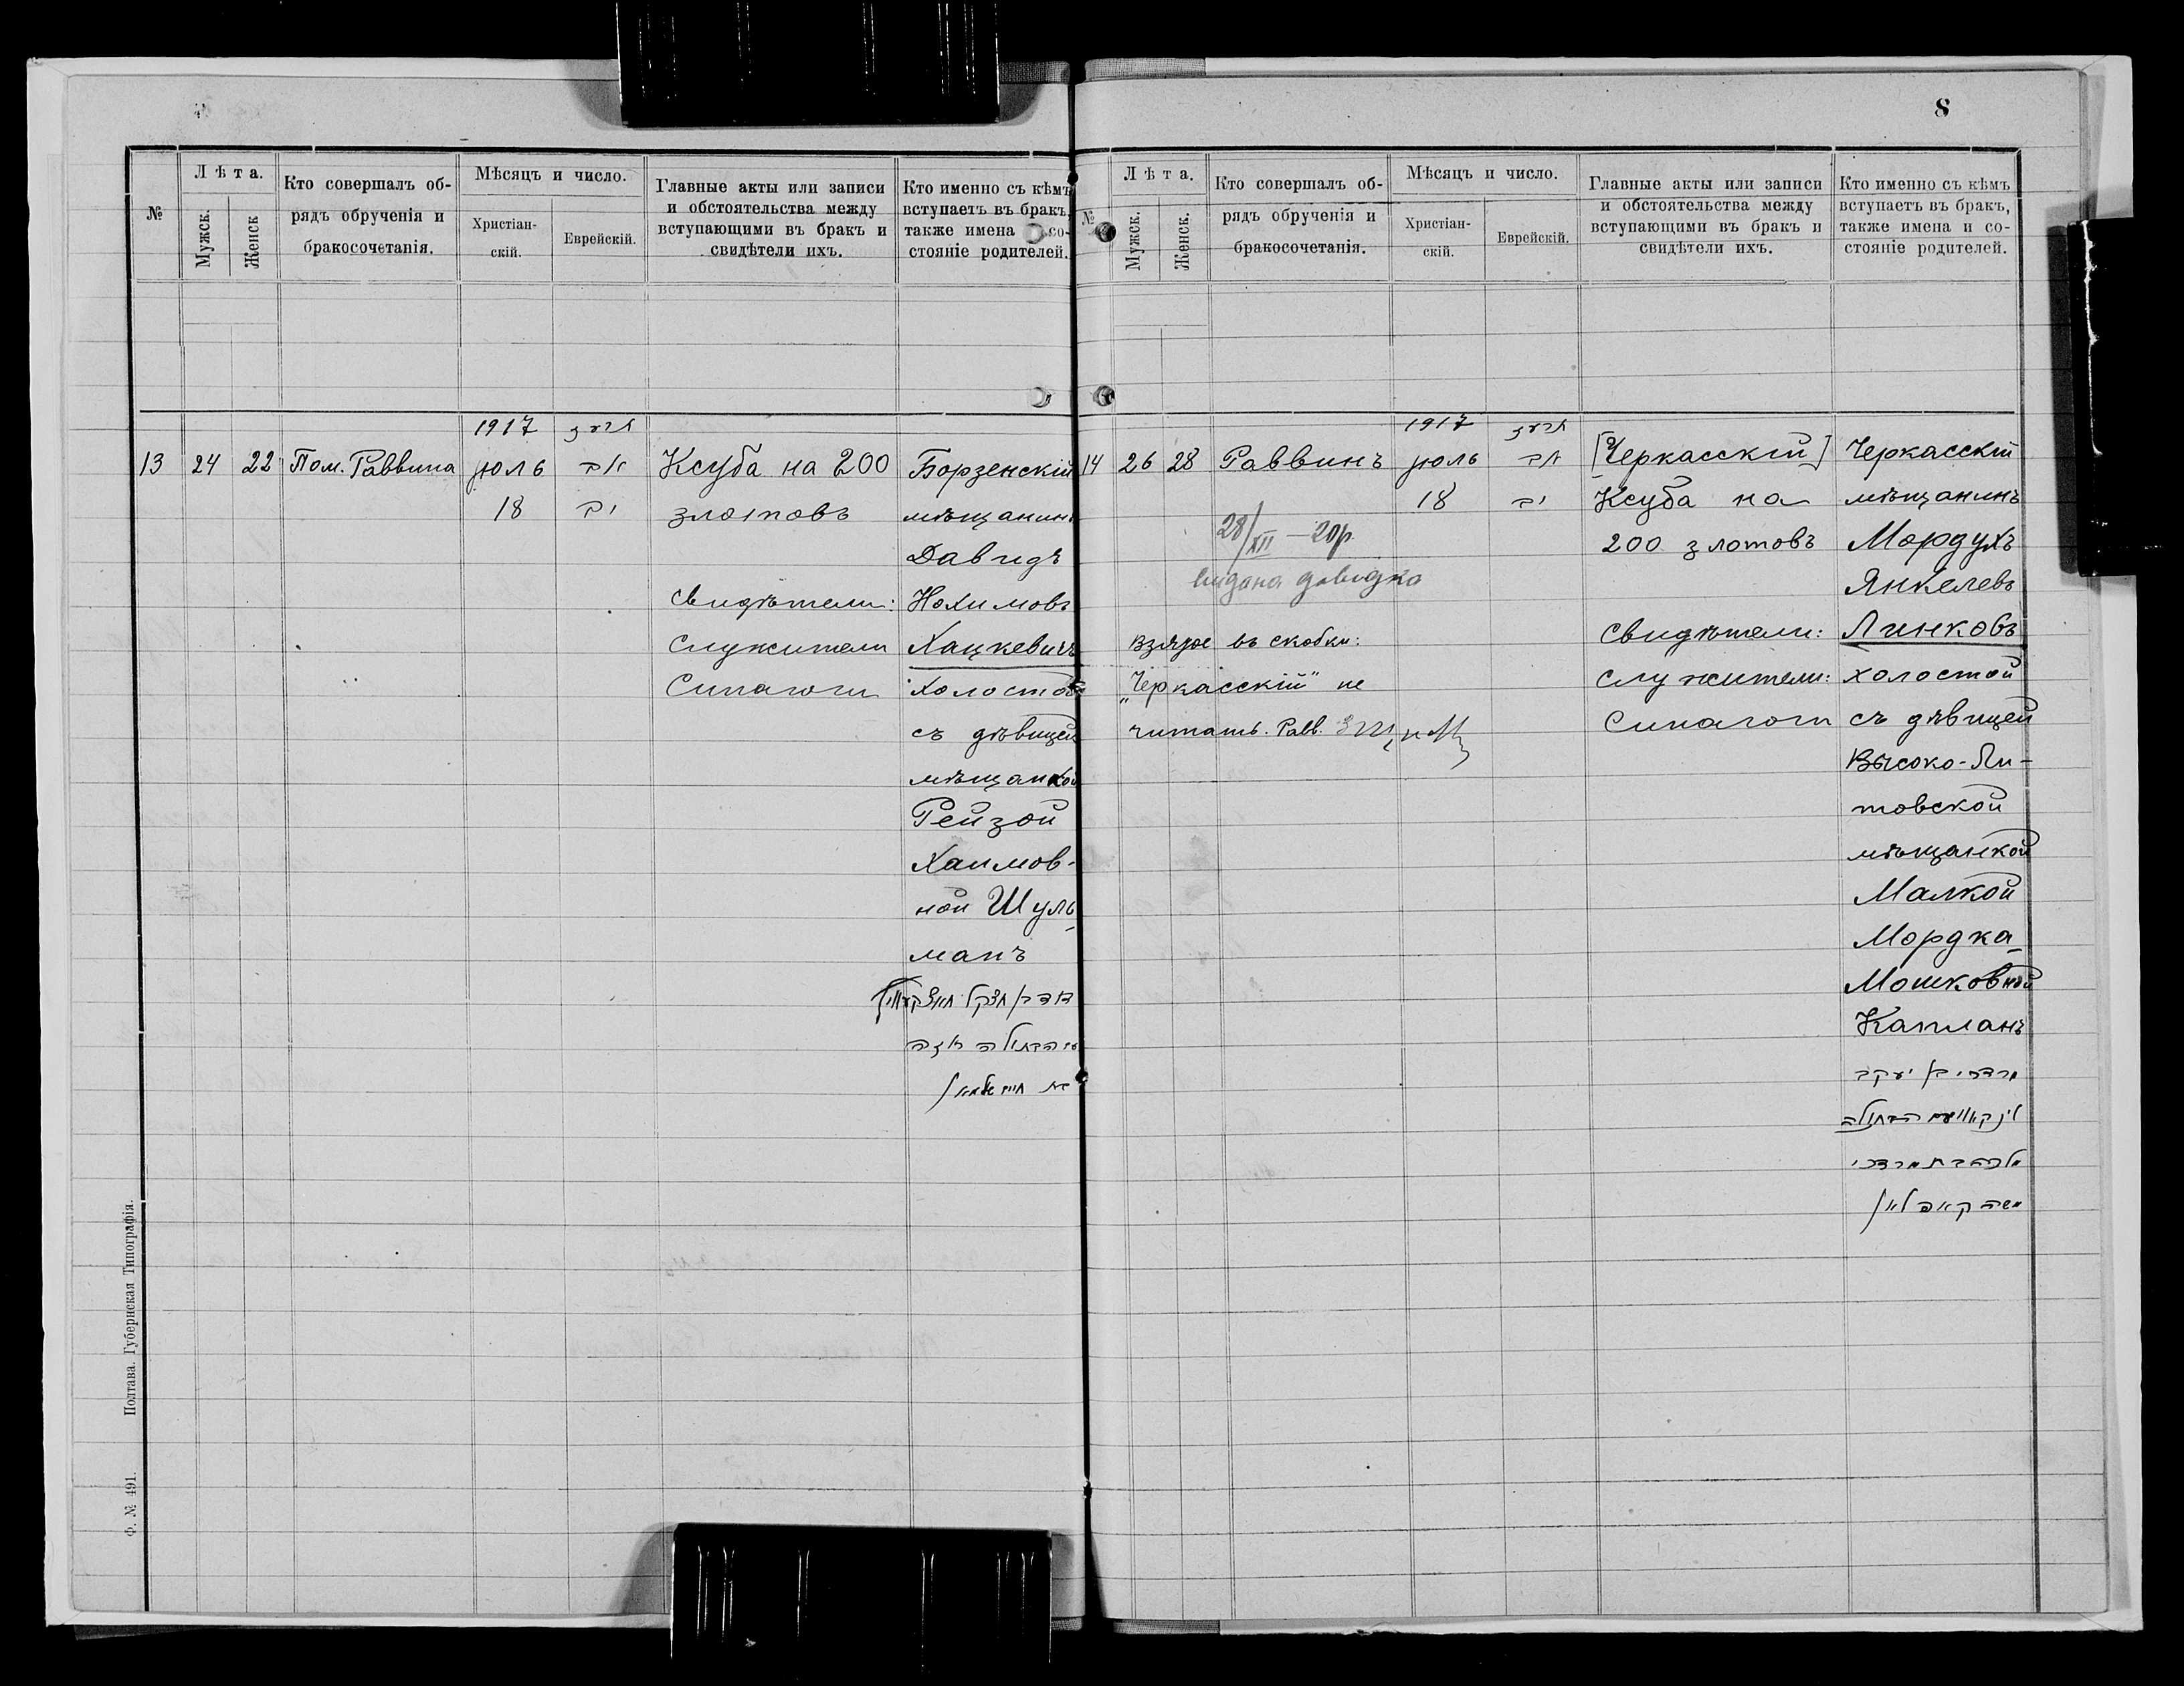 8
№
Лѣта.
Мужск.
Женск
Кто совершалъ об-
рядъ обрученія и
бракосочетанія.
Мѣсяцъ и число.
Христіан-
скій.
Еврейскій.
Главные акты или записи
и обстоятельства между
вступающими въ бракъ и
свидѣтели ихъ.
Кто именно съ кѣмъ
вступаетъ въ бракъ,
также имена со-
стояніе родителей.
1917
13 24 22 Пом. Раввина юль Ксуба на 200 Борзенскій
18 злотовъ мѣщанинъ
Давидъ
Свидѣтели: Нохимовъ
Служители Хацкевичъ
Синагоги Холостой
съ дѣвицей
мѣщанкой
Рейзой
Хаимов-
ной Шуль-
манъ
Полтава. Губернская Типографія.
Ф. № 491.
№
Лѣта.
Мужск.
Женск.
Кто совершалъ об-
рядъ обрученія и
бракосочетанія.
Мѣсяцъ и число.
Христіан-
скій.
Еврейскій.
Главные акты или записи
и обстоятельства между
вступающими въ бракъ и
свидѣтели ихъ.
Кто именно съ кѣмъ
вступаетъ въ бракъ,
также имена и со-
стояніе родителей.
1917
14 26 28 Раввинъ юль [Черкасскій] Черкасскій
18 Ксуба на мѣщанинъ
28/XII – 20р. 200 злотовъ Мордухъ
видана довідка Янкелевъ
Взятое въ скобки: Свидѣтели: Линковъ
„Черкасскій" не служители: холостой
читать. Равв. Синагоги съ дѣвицей
Высоко-Ли-
товской
мѣщанкой
Малкой
Мордка-
Мошковной
Капланъ
מרדכי בן יעקב
מלכה בת מרדכי
משה קאפלאן